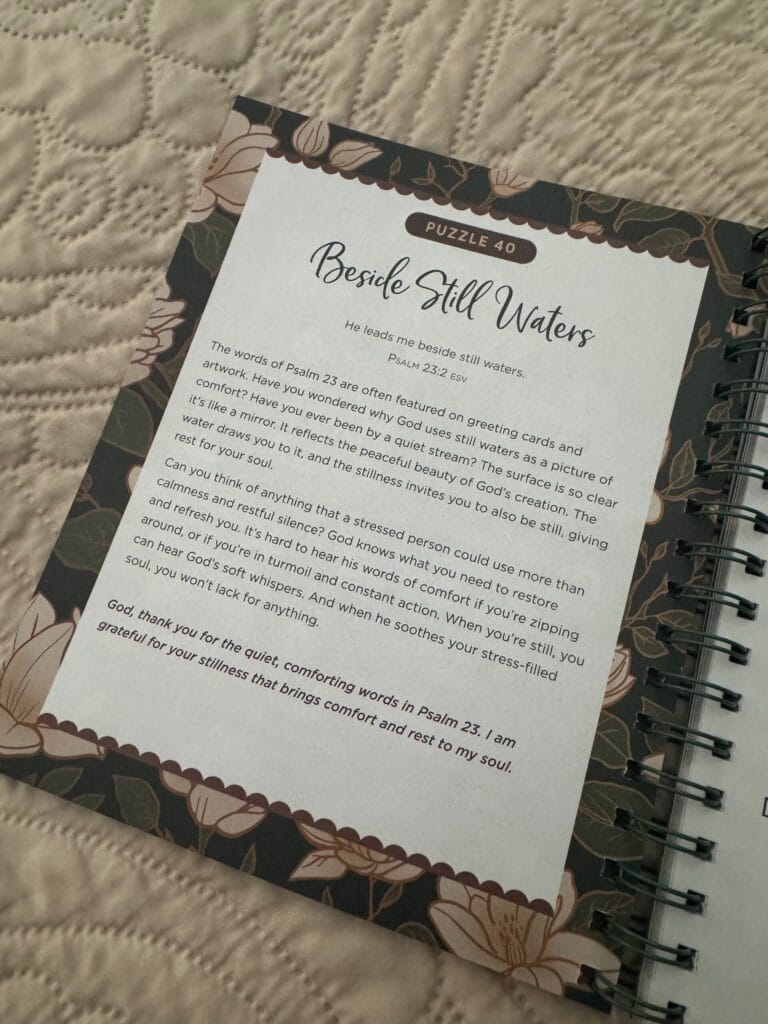 PUZZLE 40
Beside Still Waters
He leads me beside still waters.
PSALM 23:2 ESV
The words of Psalm 23 are often featured on greeting cards and
artwork. Have you wondered why God uses still waters as a picture of
comfort? Have you ever been by a quiet stream? The surface is so clear
it's like a mirror. It reflects the peaceful beauty of God's creation. The
water draws you to it, and the stillness invites you to also be still, giving
rest for your soul.
Can you think of anything that a stressed person could use more than
calmness and restful silence? God knows what you need to restore
and refresh you. It's hard to hear his words of comfort if you're zipping
around, or if you're in turmoil and constant action. When you're still, you
can hear God's soft whispers. And when he soothes your stress-filled
soul, you won't lack for anything.
God, thank you for the quiet, comforting words in Psalm 23. I am
grateful for your stillness that brings comfort and rest to my soul.